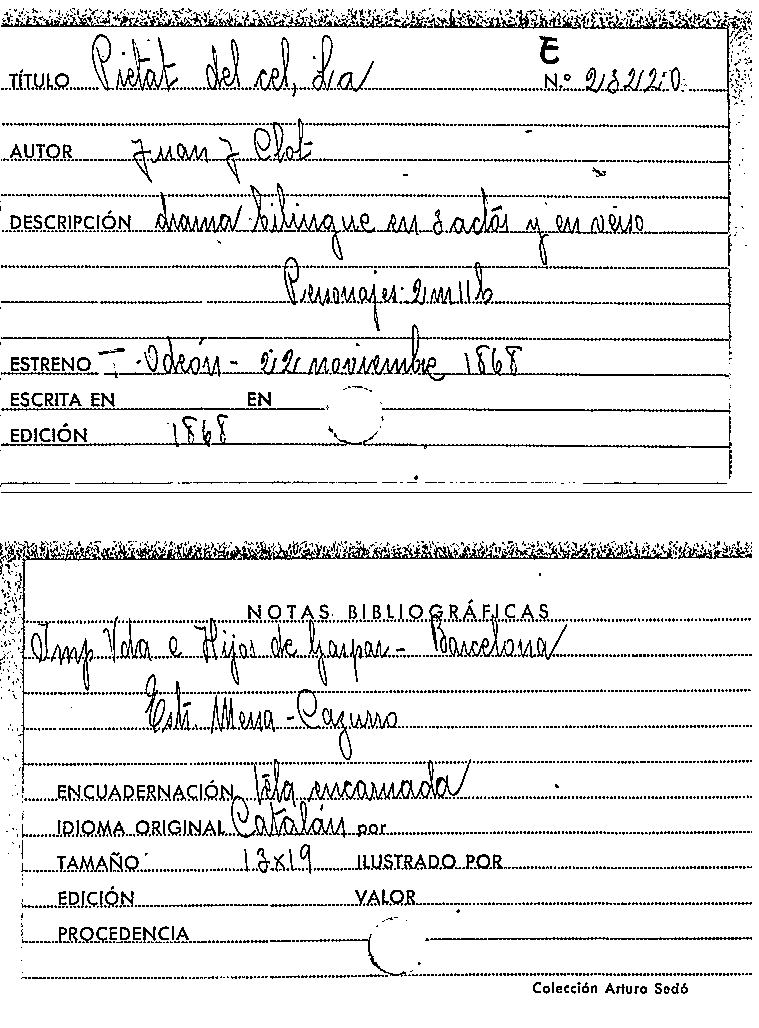 E
TÍTULO Pietat del cel, La N.º 23220
AUTOR Juan J Clot
DESCRIPCIÓN drama bilingue en 3 actos y en verso
Personajes: 2 m 11 b
ESTRENO T. Odeón - 22 noviembre 1868
ESCRITA EN EN
EDICIÓN 1868
NOTAS BIBLIOGRÁFICAS
Imp Vda e Hijos de Gaspar - Barcelona
Estr. Mena - Cazurro
ENCUADERNACIÓN tela encarnada
IDIOMA ORIGINAL Catalán por
TAMAÑO 13x19 ILUSTRADO POR
EDICIÓN VALOR
PROCEDENCIA
Colección Arturo Sedó